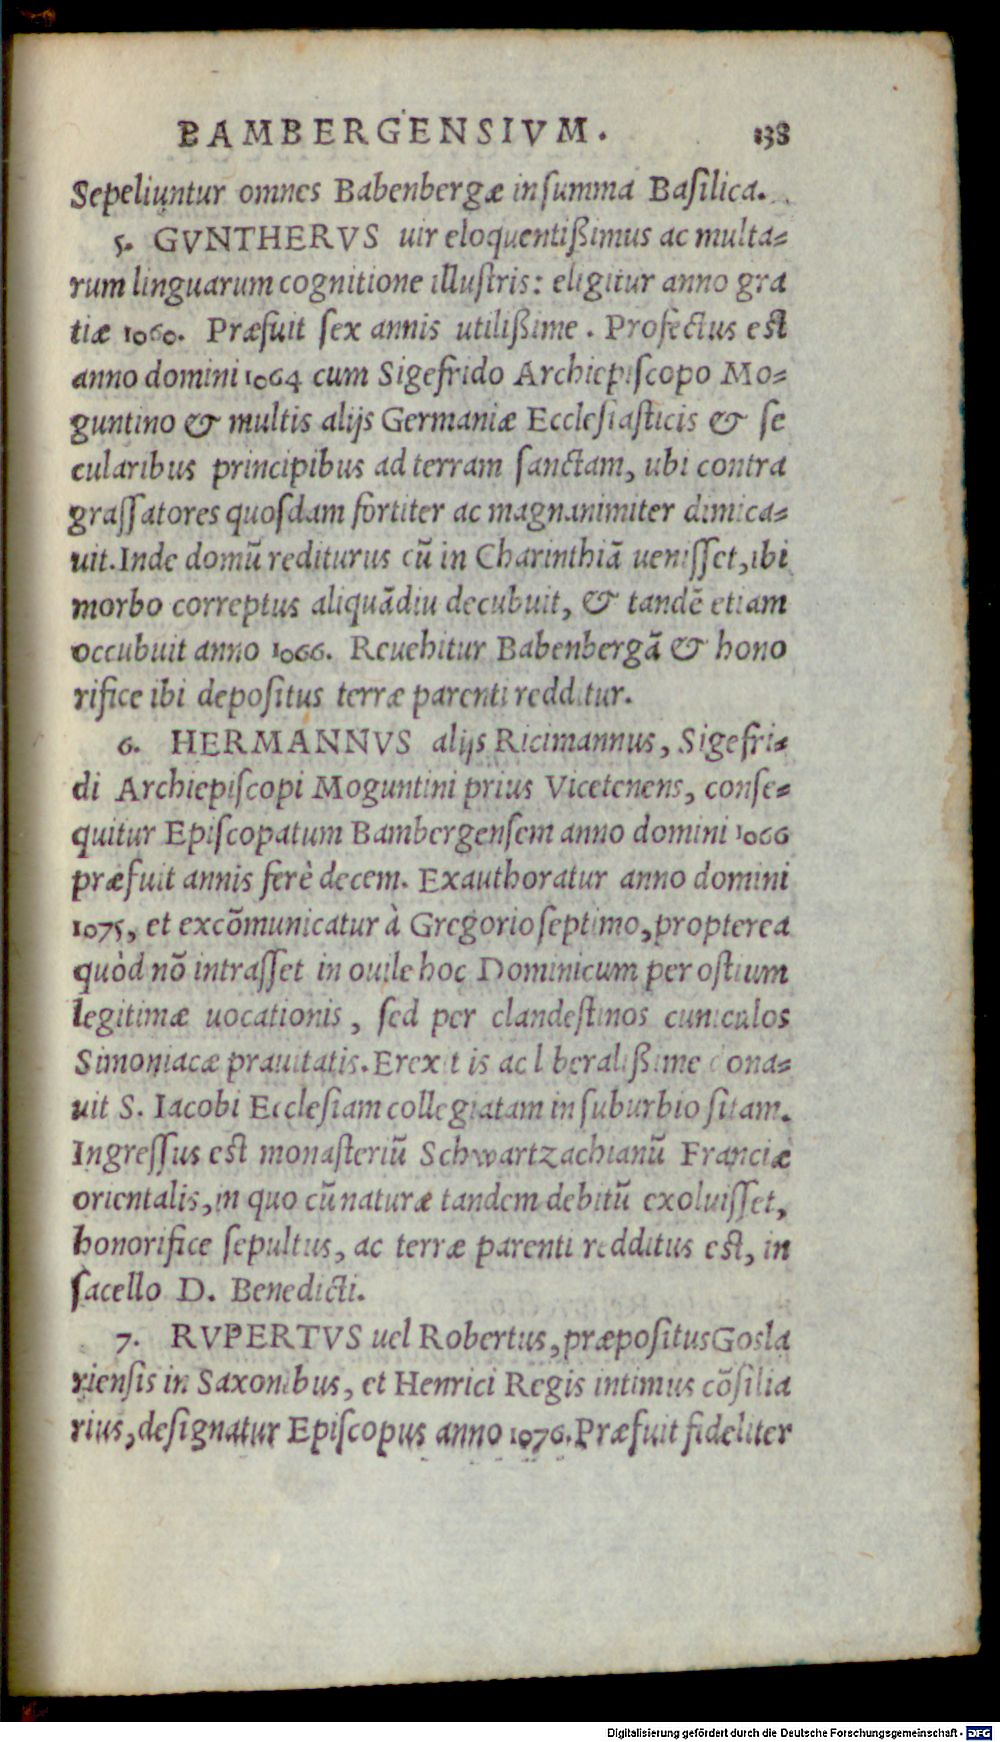 BAMBERGENSIVM. 138
Sepeliuntur omnes Babenbergæ in ſumma Baſilica.
5. GVNTHERVS uir eloquentißimus ac multa=
rum linguarum cognitione illuſtris: eligitur anno gra
tiæ 1060. Præfuit ſex annis utilißime. Profectus eſt
anno domini 1064 cum Sigefrido Archiepiſcopo Mo=
guntino & multis alijs Germaniæ Eccleſiaſticis & ſe
cularibus principibus ad terram ſanctam, ubi contra
graſſatores quoſdam fortiter ac magnanimiter dimica=
uit. Inde domũ rediturus cũ in Charinthiã ueniſſet, ibi
morbo correptus aliquãdiu decubuit, & tandẽ etiam
occubuit anno 1066. Reuehitur Babenbergã & hono
rifice ibi depoſitus terræ parenti redditur.
6. HERMANNVS alijs Ricimannus, Sigefri=
di Archiepiſcopi Moguntini prius Vicetenens, conſe=
quitur Epiſcopatum Bambergenſem anno domini 1066
præfuit annis ferè decem. Exauthoratur anno domini
1075, et excõmunicatur à Gregorio ſeptimo, propterea
quòd nõ intraſſet in ouile hoc Dominicum per oſtium
legitimæ uocationis, ſed per clandeſtinos cuniculos
Simoniacæ prauitatis. Erexit is ac liberalißime dona=
uit S. Iacobi Eccleſiam collegiatam in ſuburbio ſitam.
Ingreſſus eſt monaſteriũ Schwartzachianũ Franciæ
orientalis, in quo cũ naturæ tandem debitũ exoluiſſet,
honorifice ſepultus, ac terræ parenti redditus eſt, in
ſacello D. Benedicti.
7. RVPERTVS uel Robertus, præpoſitus Goſla
rienſis in Saxonibus, et Henrici Regis intimus cõſilia
rius, deſignatur Epiſcopus anno 1076. Præfuit fideliter
Digitalisierung gefördert durch die Deutsche Forschungsgemeinschaft - DFG